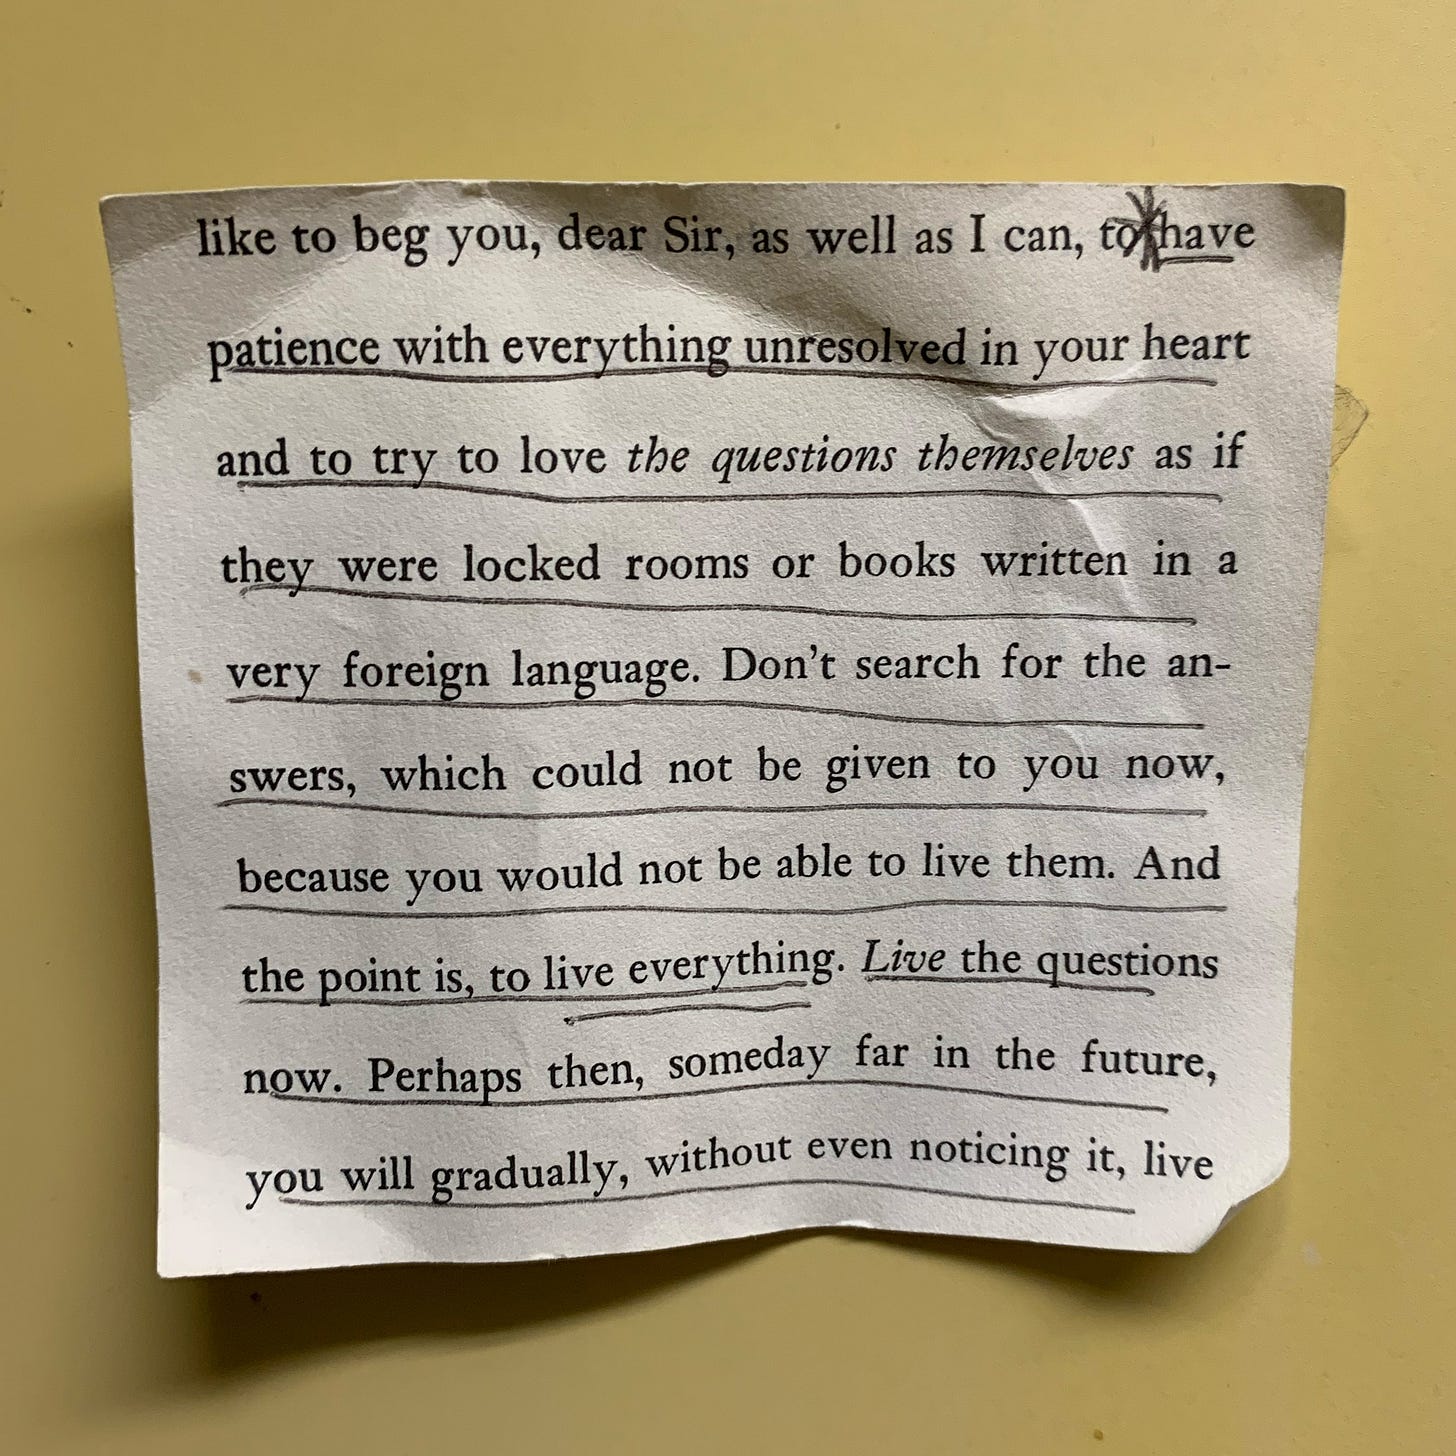 like to beg you, dear Sir, as well as I can, to have
patience with everything unresolved in your heart
and to try to love the questions themselves as if
they were locked rooms or books written in a
very foreign language. Don’t search for the an-
swers, which could not be given to you now,
because you would not be able to live them. And
the point is, to live everything. Live the questions
now. Perhaps then, someday far in the future,
you will gradually, without even noticing it, live